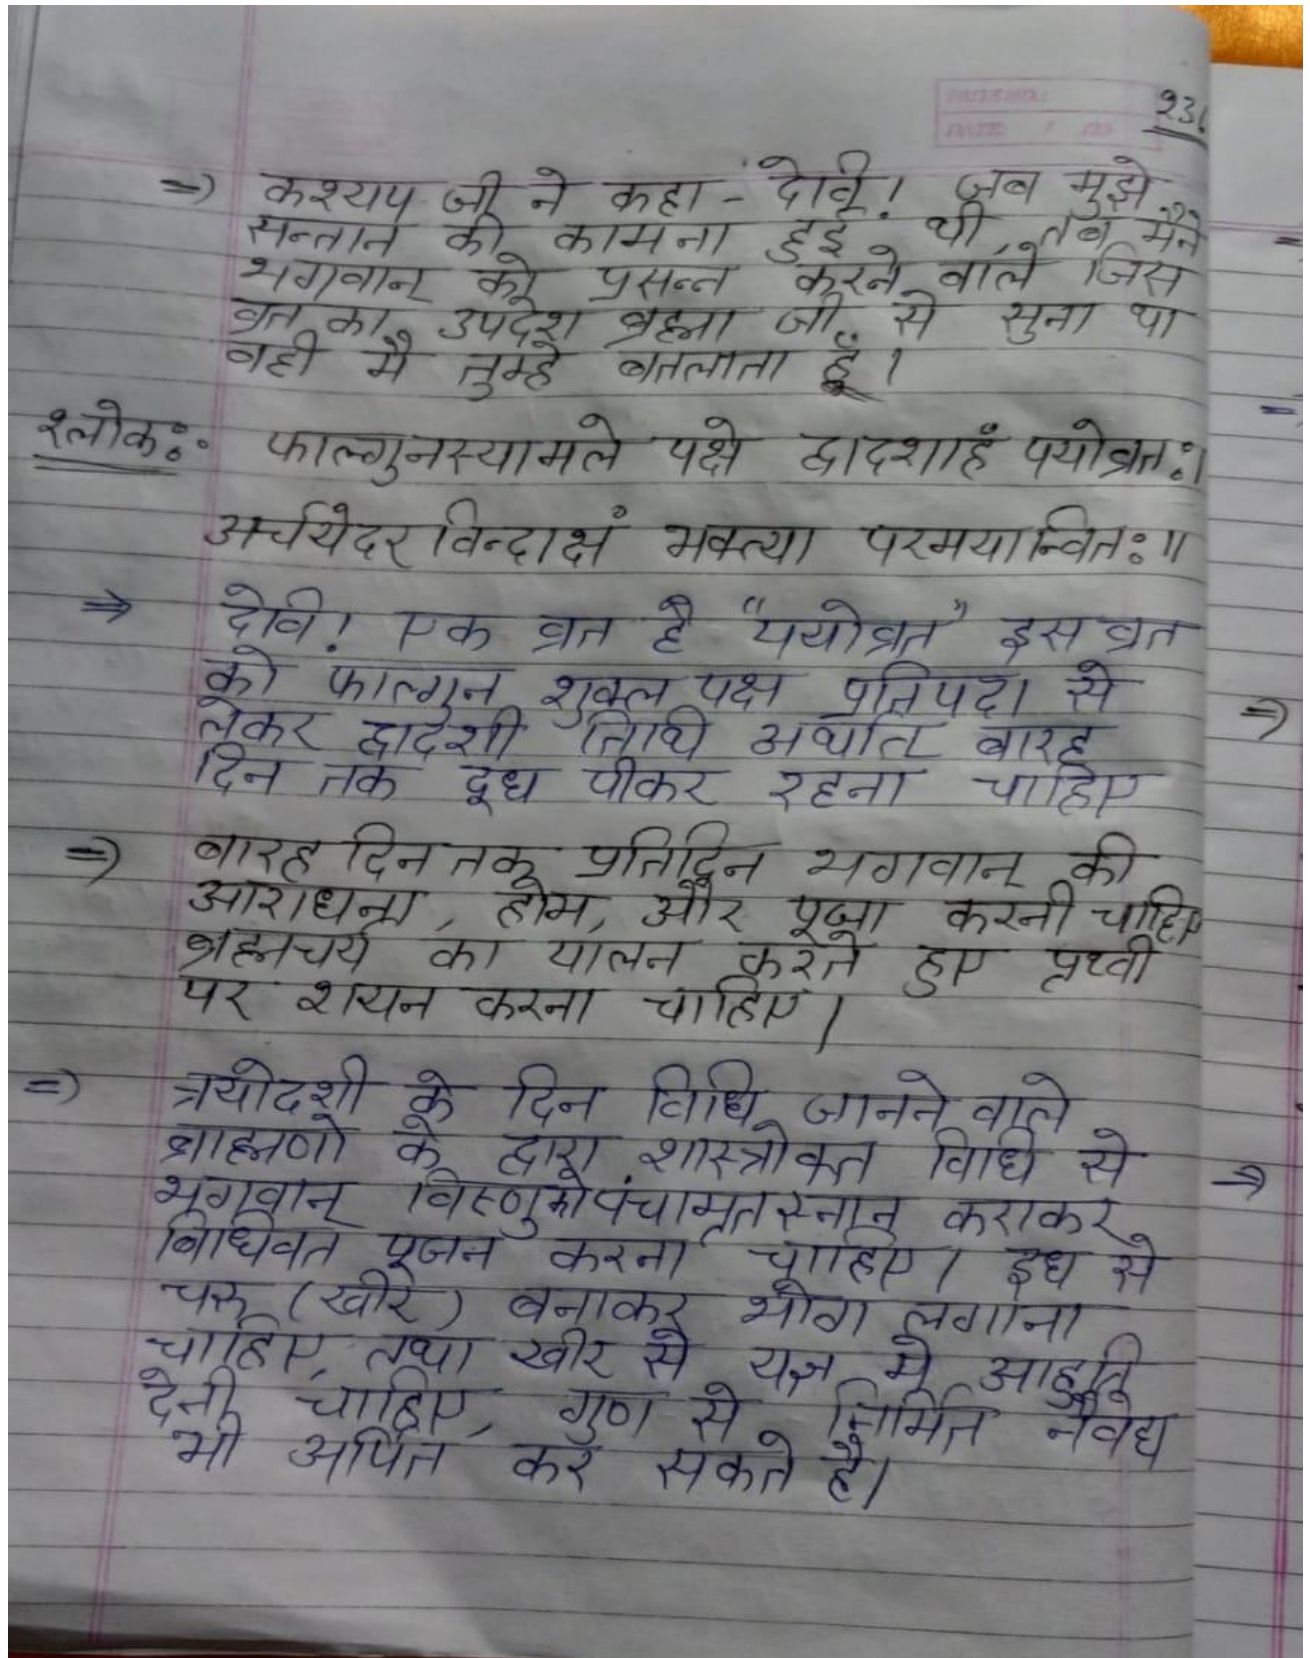 PAGE NO.:
DATE / /20
⇒ कश्यप जी ने कहा - देवि! जब मुझे
सन्तान की कामना हुई थी, तब मैने
भगवान् को प्रसन्न करने वाले जिस
व्रत का उपदेश ब्रह्मा जी से सुना था
वही मै तुम्हे बतलाता हूँ।
श्लोकः फाल्गुनस्यामले पक्षे द्वादशाहँ पयोव्रतः।
अर्चयेदरविन्दाक्षं भक्त्या परमयान्वितः॥
⇒ देवि! एक व्रत है "पयोव्रत" इस व्रत
को फाल्गुन शुक्ल पक्ष प्रतिपदा से
लेकर द्वादशी तिथि अर्थात बारह
दिन तक दूध पीकर रहना चाहिए
⇒ बारह दिन तक प्रतिदिन भगवान् की
आराधना, होम, और पूजा करनी चाहिए
ब्रह्मचर्य का पालन करते हुए पृथ्वी
पर शयन करना चाहिए।
⇒ त्रयोदशी के दिन विधि जानने वाले
ब्राह्मणो के द्वारा शास्त्रोक्त विधि से
भगवान् विष्णु को पंचामृत स्नान कराकर
विधिवत पूजन करना चाहिए। दूध से
चरू (खीर) बनाकर भोग लगाना
चाहिए, तथा खीर से यज्ञ मे आहुति
देनी चाहिए, गुण से निर्मित नैवेद्य
भी अर्पित कर सकते है।